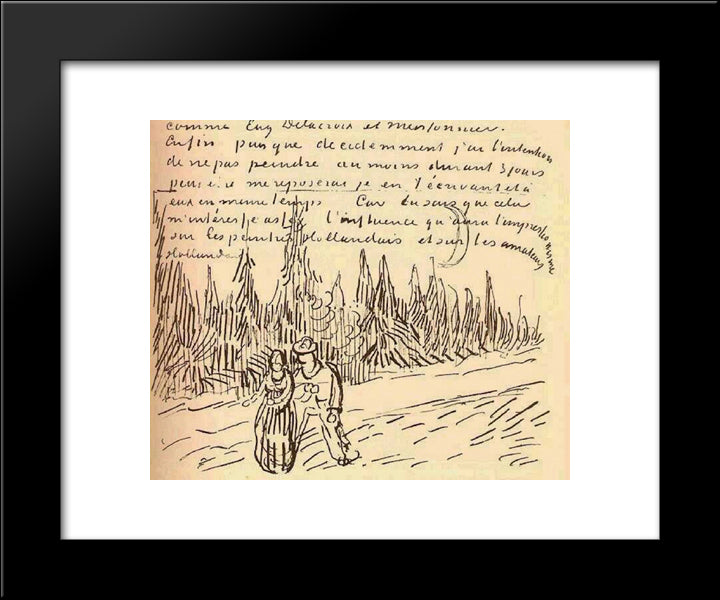 comme Eug Delacroix et Meissonnier.
Enfin puis que decidemment j'ai l'intention
de ne pas peindre au moins durant 3 jours
peut etre me reposerai je en t'écrivant et à
eux en meme temps Car tu sais que cela
m'intéresse assez l'influence qu'aura l'impressionisme
sur les peintres Hollandais et sur les amateurs
Hollandais